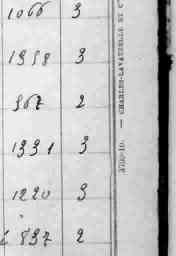 1066 3
1958 3
967 2
1331 3
1220 3
837 2
CHARLES-LAVAUZELLE ET C